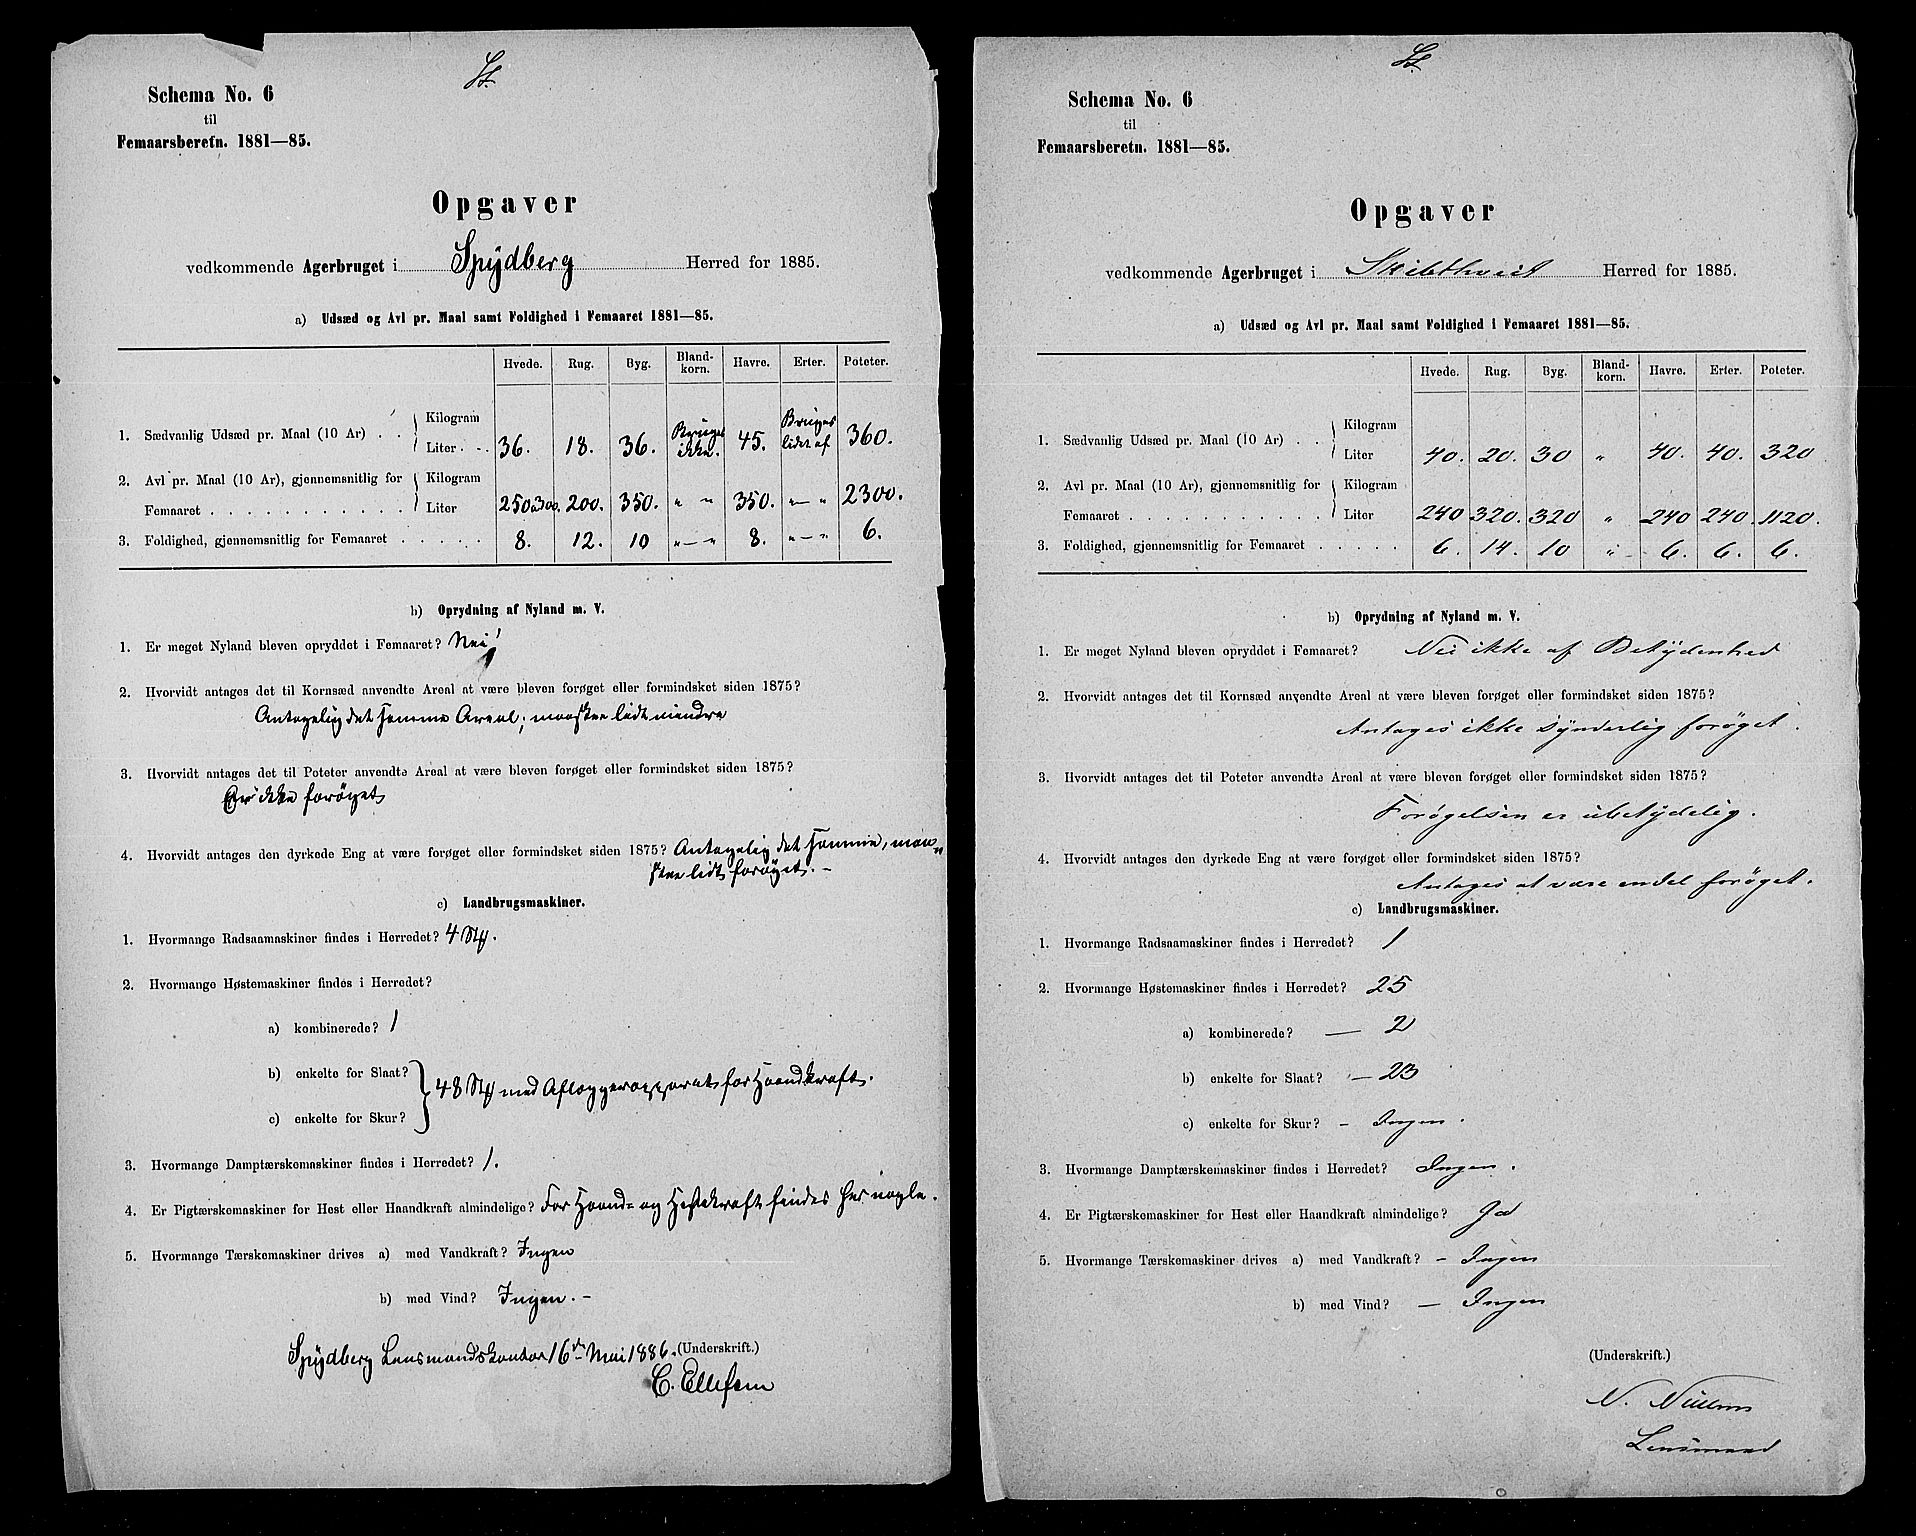 St.
Schema No. 6
til
Femaarsberetn. 1881—85.
Opgaver
vedkommende Agerbruget i Spydberg Herred for 1885.
a) Udsæd og Avl pr. Maal samt Foldighed i Femaaret 1881—85.
Hvede. Rug. Byg. Bland-korn. Havre. Erter. Poteter.
1. Sædvanlig Udsæd pr. Maal (10 Ar) . . Kilogram
Liter . . . 36. 18. 36. Bruges ikke. 45. Bruges lidet af 360.
2. Avl pr. Maal (10 Ar), gjennemsnitlig for Kilogram
Femaaret . . . . . . . . . . . Liter 250 a 300. 200. 350. „ „ 350. „—„ 2300.
3. Foldighed, gjennemsnitlig for Femaaret . . . . . 8. 12. 10 „—„ 8. „—„ 6.
b) Oprydning af Nyland m. V.
1. Er meget Nyland bleven opryddet i Femaaret? Nei!
2. Hvorvidt antages det til Kornsæd anvendte Areal at være bleven forøget eller formindsket siden 1875?
Antagelig det samme Areal; maaskee lidt mindre
3. Hvorvidt antages det til Poteter anvendte Areal at være bleven forøget eller formindsket siden 1875?
Er ikke forøget
4. Hvorvidt antages den dyrkede Eng at være forøget eller formindsket siden 1875? Antagelig det samme, maa=
skee lidt forøget. —
c) Landbrugsmaskiner.
1. Hvormange Radsaamaskiner findes i Herredet? 4 Stk.
2. Hvormange Høstemaskiner findes i Herredet?
a) kombinerede? 1
b) enkelte for Slaat?
48 Stk med Aflæggerapparat for Haandkraft.
c) enkelte for Skur?
3. Hvormange Damptærskemaskiner findes i Herredet? 1.
4. Er Pigtærskemaskiner for Hest eller Haandkraft almindelige? For Haand= og Hestekraft findes her nogle.
5. Hvormange Tærskemaskiner drives a) med Vandkraft? Ingen
b) med Vind? Ingen. —
Spydberg Lensmandskontor 16de Mai 1886. (Underskrift.)
C. Ellefsen
St.
Schema No. 6
til
Femaarsberetn. 1881—85.
Opgaver
vedkommende Agerbruget i Skibthveit Herred for 1885.
a) Udsæd og Avl pr. Maal samt Foldighed i Femaaret 1881—85.
Hvede. Rug. Byg. Bland-korn. Havre. Erter. Poteter.
1. Sædvanlig Udsæd pr. Maal (10 Ar) . . Kilogram
Liter 40. 20. 30 „ 40. 40. 320
2. Avl pr. Maal (10 Ar), gjennemsnitlig for Kilogram
Femaaret . . . . . . . . . . . Liter 240 320. 320 „ 240 240. 1120.
3. Foldighed, gjennemsnitlig for Femaaret . . . . . 6. 14. 10 „ 6. 6. 6.
b) Oprydning af Nyland m. V.
1. Er meget Nyland bleven opryddet i Femaaret? Nei ikke af Betydenhed
2. Hvorvidt antages det til Kornsæd anvendte Areal at være bleven forøget eller formindsket siden 1875?
Antages ikke synderlig forøget.
3. Hvorvidt antages det til Poteter anvendte Areal at være bleven forøget eller formindsket siden 1875?
Forøgelsen er ubetydelig.
4. Hvorvidt antages den dyrkede Eng at være forøget eller formindsket siden 1875?
Antages at være endel forøget.
c) Landbrugsmaskiner.
1. Hvormange Radsaamaskiner findes i Herredet? 1
2. Hvormange Høstemaskiner findes i Herredet? 25
a) kombinerede? — 2
b) enkelte for Slaat? — 23
c) enkelte for Skur? — Ingen.
3. Hvormange Damptærskemaskiner findes i Herredet? Ingen.
4. Er Pigtærskemaskiner for Hest eller Haandkraft almindelige? Ja
5. Hvormange Tærskemaskiner drives a) med Vandkraft? — Ingen
b) med Vind? — Ingen
(Underskrift.)
N.
Lensmand